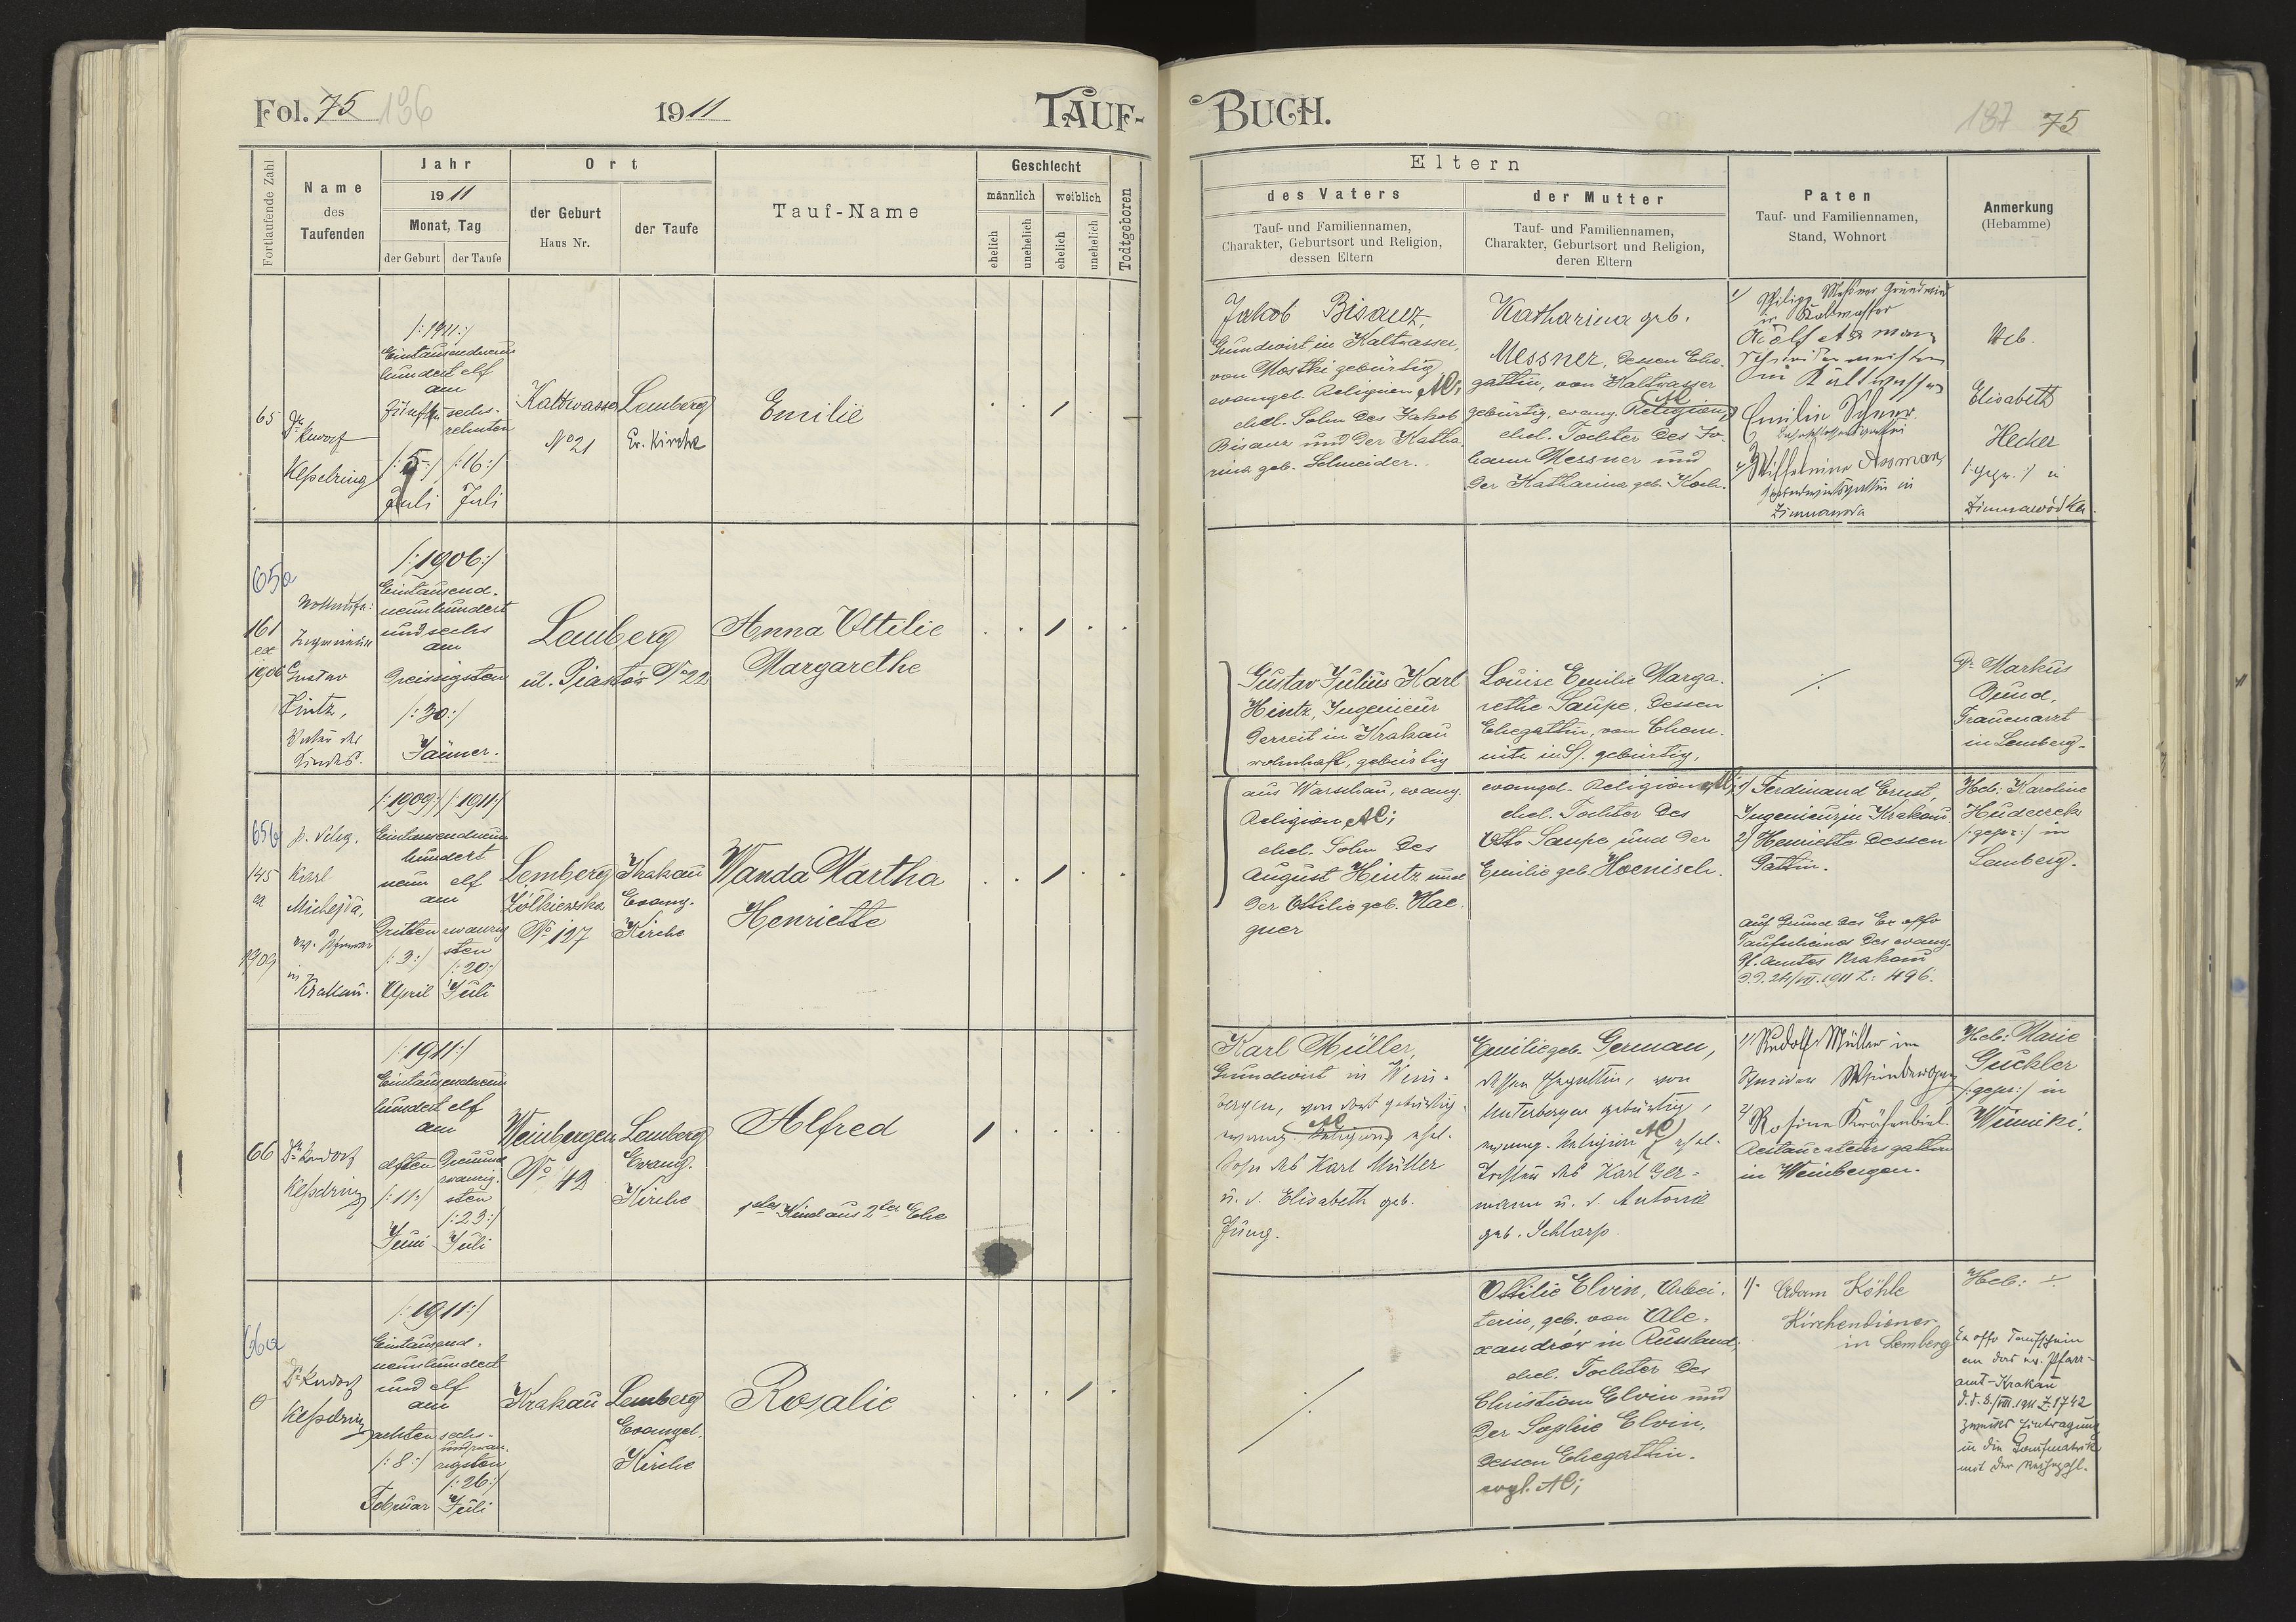 Fol. 75 136
1911
TAUF-
Fortlaufende Zahl
Name
des
Taufenden
Jahr
1911
Monat, Tag
der Geburt
der Taufe
Ort
der Geburt
Haus Nr.
der Taufe
Tauf-Name
Geschlecht
männlich
weiblich
ehelich
unehelich
ehelich
unehelich
Todtgeboren
65
Dr.
Kesselring
/:1911:/
Eintausendneun
hundert elf
am
Fünften
/:5:/
Juli
sech-
zehnten
/:16:/
Juli
Kaltwasser
No 21
Lemberg
Ev. Kirche
Emilie
65a
161
ex
1906
Ingenieur
Gustav
Hintz,
Vater des
Kindes.
/:1906:/
Eintausend-
neunhundert
und sechs
am
Dreissigsten
/:30:/
Jänner.
Lemberg
ul. Piastów No 22
Anna Ottilie
Margarethe
65b
145
ex
1909
p. deleg.
Karl
Michejda,
ev. Pfarrer
in
Krakau.
/:1909:/ /:1911:/
Eintausendneun
hundert
neun elf
am
Dritten
/:3:/
April
zwanzig
sten
/:20:/
Juli
Lemberg
Żółkiewska
No 127
Krakau
Evang.
Kirche
Wanda Martha
Henriette
66
Dr.
Kesselring
/:1911:/
Eintausendneun
hundert elf
am
elften
/:11:/
Juni
Dreiund
zwanzig-
sten
/:23:/
Juli
Weinbergen
No 42
Lemberg
Evang.
Kirche
Alfred
1tes Kind aus 2ter Ehe
66a
0
Dr.
Kesselring
/:1911:/
Eintausend-
neunhundert
und elf
am
achten
/:8:/
Februar
sechs-
undzwan-
zigsten
/:26:/
Juli
Krakau
Lemberg
Evangel.
Kirche
Rosalie
BUCH.
187 75
Eltern
des Vaters
Tauf- und Familiennamen,
Charakter, Geburtsort und Religion,
dessen Eltern
der Mutter
Tauf- und Familiennamen,
Charakter, Geburtsort und Religion,
deren Eltern
Paten
Tauf- und Familiennamen,
Stand, Wohnort
Anmerkung
(Hebamme)
Jakob Bisanz,
Grundwirt in Kaltwasser,
von Mostki gebürtig
evangel. Religion AC;
ehel. Sohn des Jakob
Bisanz und der Katha
rina geb. Schneider.
Katharina geb.
Messner, dessen Ehe-
gattin, von Kaltwasser
gebürtig, evang. Religion AC
ehel. Tochter des Jo-
hann Messner und
der Katharina geb. Koch.
1/ Philipp Messner Grundwirt
in Kaltwasser
in Kaltwasser
Emilie
2/ Wilhelmine Assman,
Grundwirtsgattin in
Zimnawoda
Heb.
Elisabeth
Hecker
/:gepr.:/ in
Zimnawódka.
Gustav Julius Karl
Hintz, Ingenieur
derzeit in Krakau
wohnhaft, gebürtig
aus Warschau, evang.
Religion AC;
ehel. Sohn des
August Hintz und
der Ottilie geb. Hae.
gner
Louise Emilie Marga-
rethe Saupe, dessen
Ehegattin, von Chem-
nitz in S/. gebürtig,
evangel. Religion AC;
ehel. Tochter des
Otto Saupe und der
Emilie geb. Hoenisch.
Dr Markus
Bund,
Frauenarzt
in Lemberg.
1/ Ferdinand Ernst,
Ingenieur in Krakau.
2/ Henriette dessen
Gattin.
auf Grund des Ex offo
Taufscheines des evang.
Pf. Amtes Krakau
d.d. 24/VII. 1911 Z: 496.
Heb: Karoline
Hudecrek
/:gepr:/ in
Lemberg.
Karl Müller,
Grundwirt in Wein-
bergen, von dort gebürtig,
evang. AC Religion ehel.
Sohn des Karl Müller
u. d. Elisabeth geb.
Jung.
Emilie geb. German,
dessen Ehegattin, von
Unterbergen gebürtig,
evang. Religion AC ehel.
Tochter des Karl Ger-
mann u. d. Antonie
geb. Schlarp.
1/ Rudolf Müller
2/ Rosine
Restaurateursgattin
in Weinbergen.
Heb: Marie
Guckler
/:gepr:/ in
Winniki.
Ottilie Elvin, Arbei-
terin, geb. von Ale-
xandrów in Russland,
ehel. Tochter des
Christian Elvin und
der Sophie Elvin,
dessen Ehegattin.
evgl. AC;
1/. Adam Köhle
Kirchendiener
in Lemberg
Heb: ./.
Ex offo Taufschein
an das ev. Pfarr-
amt-Krakau
d.d. 8./VIII. 1911 Z. 1742
zwecks Eintragung
in die Taufmatrik
mit der Reihezahl.